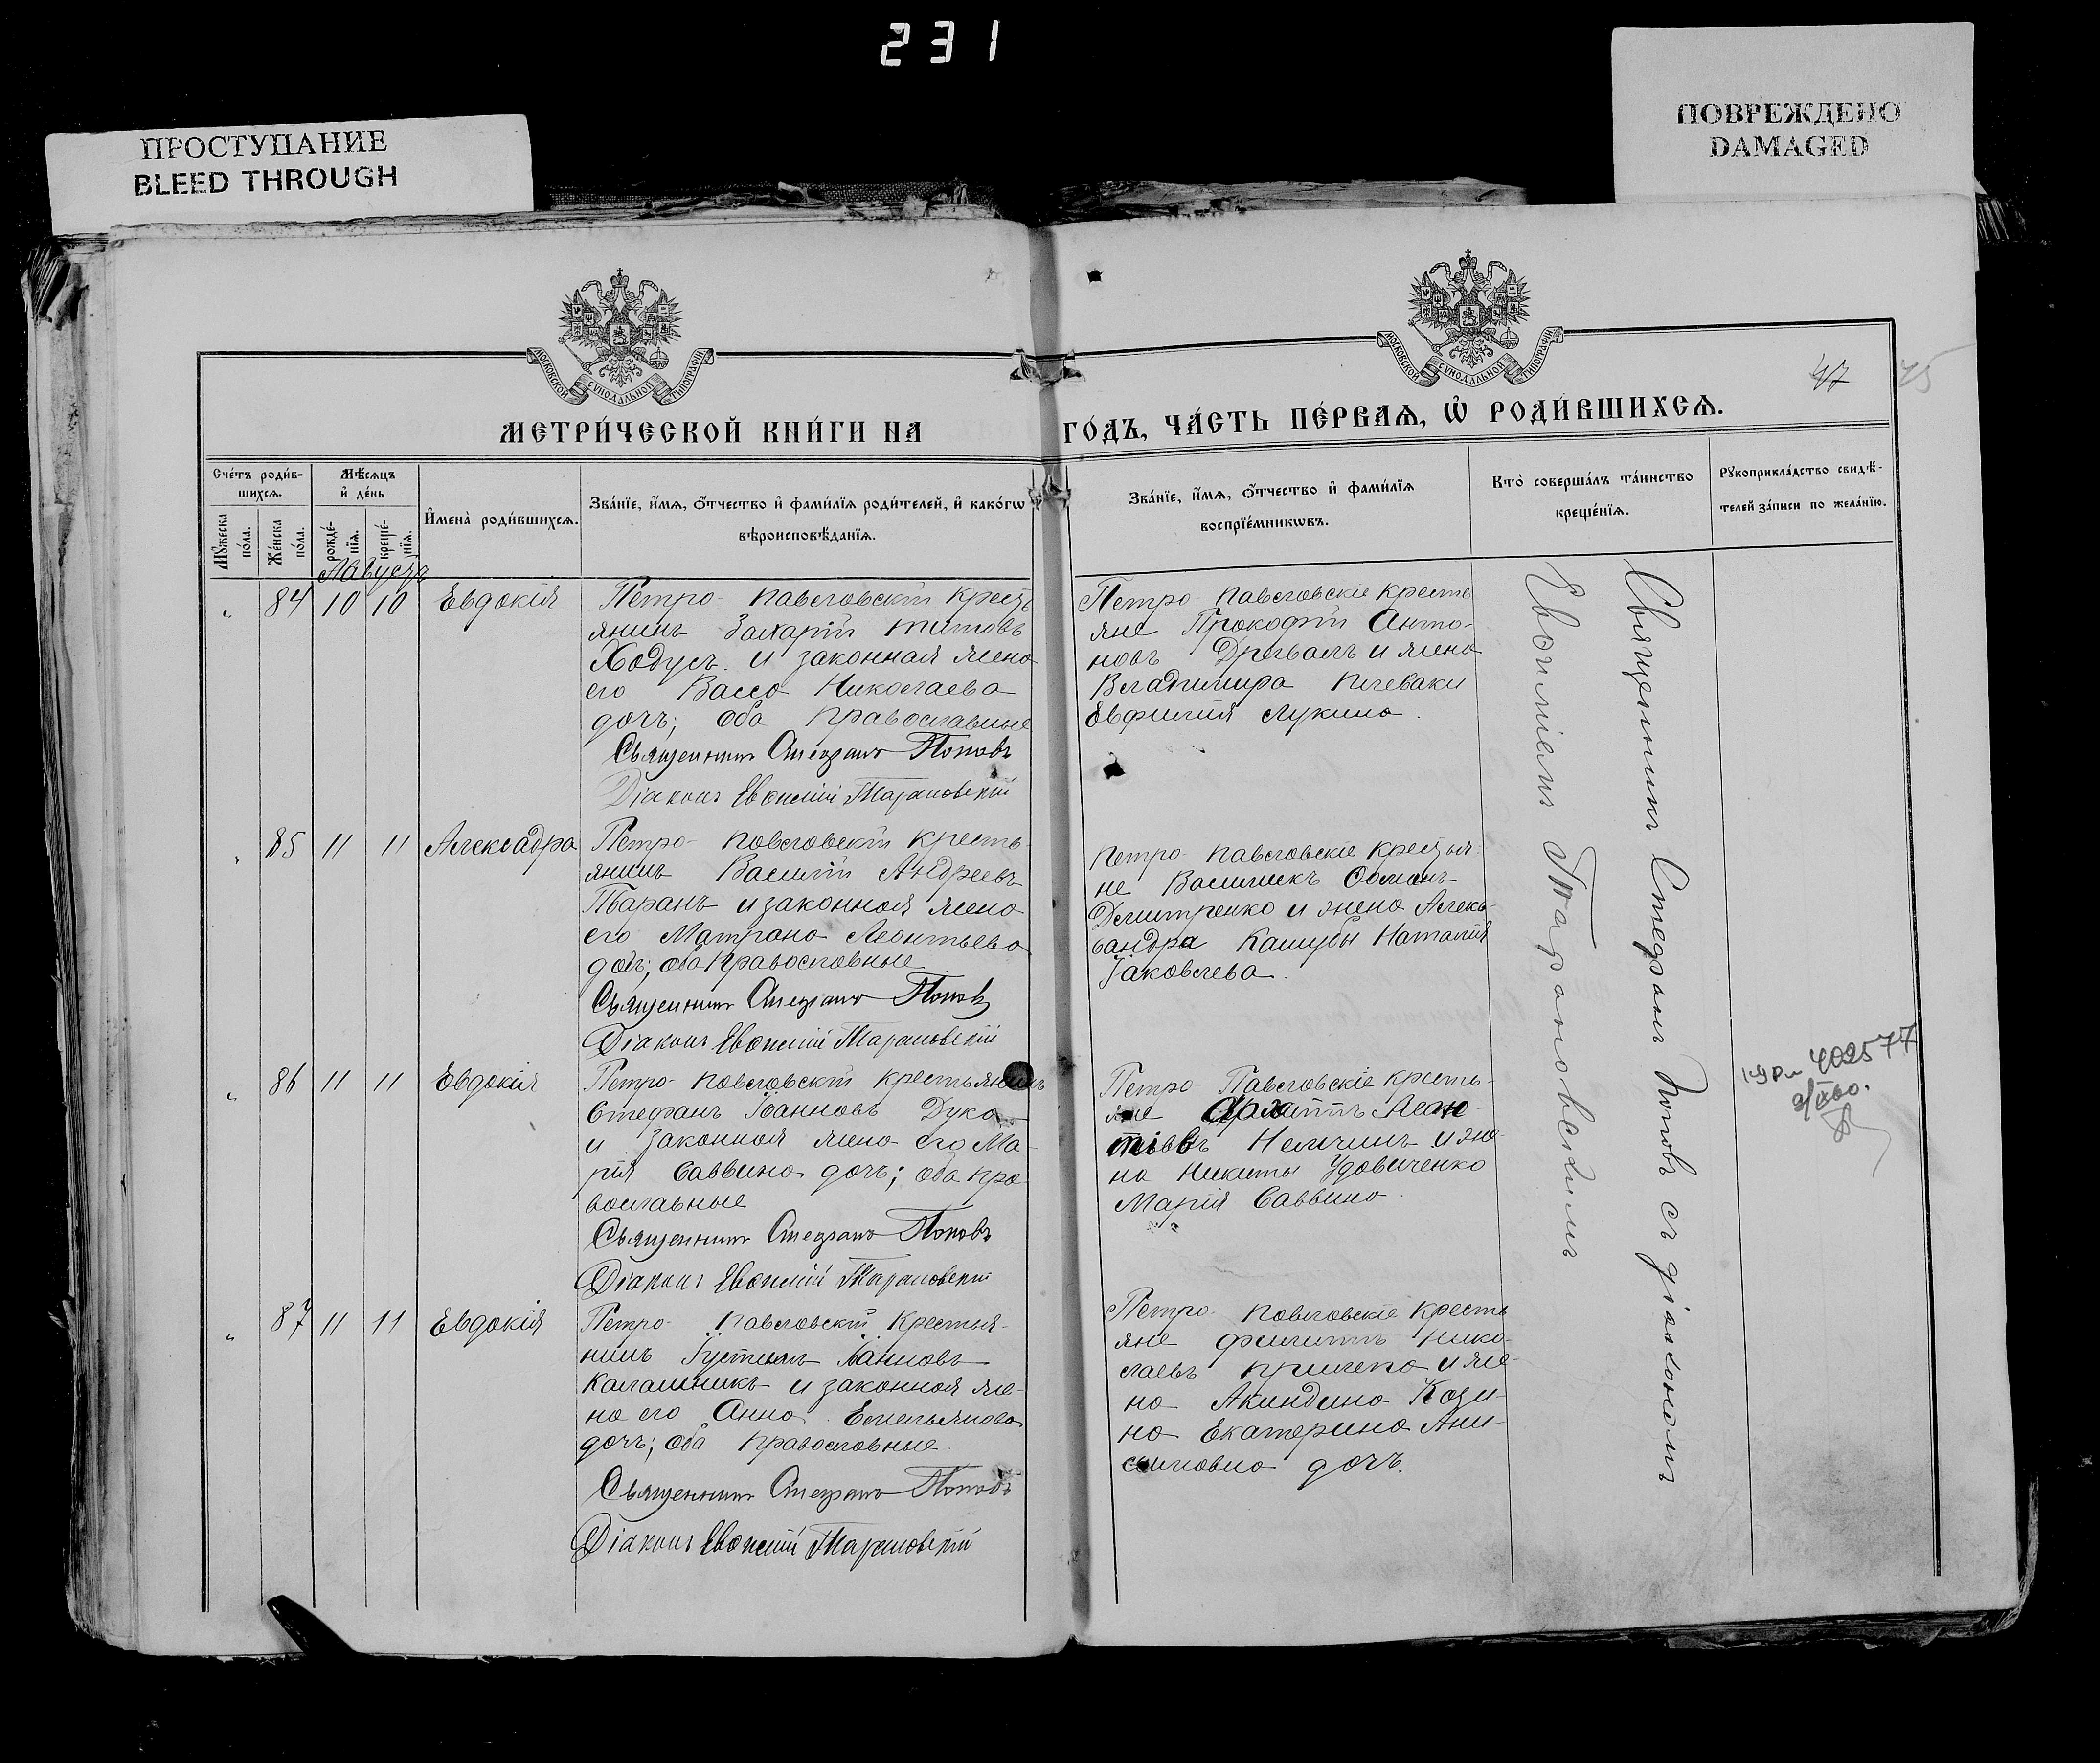 231
ПРОСТУПАНИЕ
BLEED THROUGH
ПОВРЕЖДЕНО
DAMAGED
МОСКОВСКОЙ СѴНОДАЛЬНОЙ ТИПОГРАФІИ
МОСКОВСКОЙ СѴНОДАЛЬНОЙ ТИПОГРАФІИ
47 45
МЕТРИ́ЧЕСКОЙ КНИ́ГИ НА
ГО́ДЪ, ЧА́СТЬ ПЕ́РВАѦ, Ѡ҆ РОДИ́ВШИХСѦ.
Сче́тъ роди́в-
шихсѧ.
Мѣ́сѧцъ
и҆ де́нь
Мꙋ́жеска
по́ла.
Же́нска
по́ла.
рожде́-
нїѧ.
креще́-
нїѧ.
И҆мена̀ роди́вшихсѧ.
Зва́нїе, и҆́мѧ, ѻ҆́тчество и҆ фами́лїѧ роди́телей, и҆ како́гѡ
вѣроисповѣ́данїѧ.
Зва́нїе, и҆́мѧ, ѻ҆́тчество и҆ фами́лїѧ
воспрїе́мникѡвъ.
Кто̀ соверша́лъ та́инство
креще́нїѧ.
Рꙋкоприкла́дство свидѣ́-
телей за́писи по жела́нїю.
Августъ
„ 84 10 10 Евдокія
Петро-Павловскій кресть
янинъ Захарій Титовъ
Ходусъ и законная жена
его Васса Николаева
дочь; оба православные
Священникъ Стефанъ Поповъ
Діаконъ Евѳимій Тарановскій
Петро-Павловскіе кресть
яне Прокофій Анто-
новъ Дригвалъ и жена
Владимира Плеваки
Евфимія Лукина.
„ 85 11 11 Алексадра
Петро-Павловскій кресть
янинъ Василій Андреевъ
Таранъ и законная жена
его Матрона Леонтьева
дочь; оба православные
Священникъ Стефанъ Поповъ
Діаконъ Евѳимій Тарановскій
Петро-Павловскіе крестья
не
Дмитренко и жена Алекъ-
сандра Кашубы Наталія
Іаковлева.
„ 86 11 11 Евдокія
Петро-Павловскій крестьянинъ
Стефанъ Іоанновъ Дука
и законная жена его Ма-
рія Саввина дочь; оба пра
вославные
Священникъ Стефанъ Поповъ
Діаконъ Евѳимій Тарановскій
Петро Павловскіе кресть-
яне
и же-
на Никиты Удовиченко
Марія Саввина.
„ 87 11 11 Евдокія
Петро-Павловскій крестья-
нинъ Іустинъ Іоанновъ
Калашникъ и законная же-
на его Анна Емельянова
дочь; оба православные.
Священникъ Стефанъ Поповъ
Діаконъ Евѳимій Тарановскій
Петро-Павловскіе кресть
яне Филиппъ Нико-
лаевъ Прилепа и же-
на Акиндина Кози-
на Екатерина Ани-
симовна дочь.
Священникъ Стефанъ Поповъ съ діакономъ
Евѳиміемъ Тарановскимъ
402577